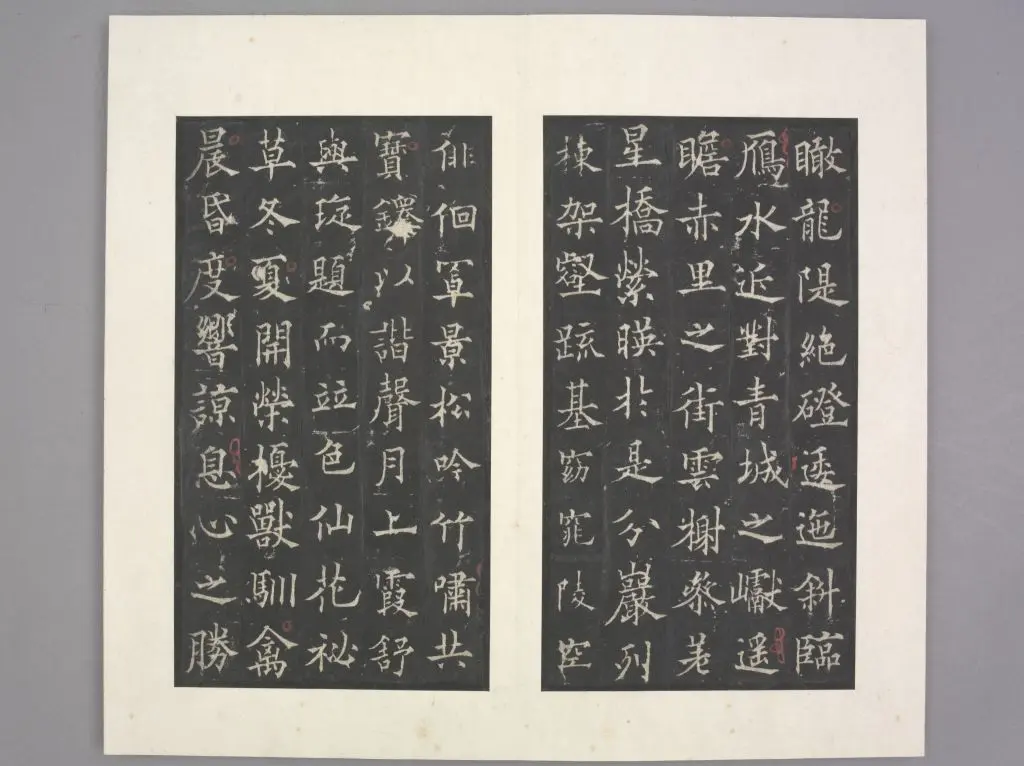 瞰龍隄絶磴逶迤斜臨
鴈水近對青城之巘遥
瞻赤里之街雲榭參差
星橋縈暎扵是分巖列
棟架壑疏基窈窕陵空
徘徊罩景松吟竹嘯共
寶鐸以諧聲月上霞舒
與琁題而竝色仙花祕
草冬夏開榮擾獸馴禽
晨昏度響諒息心之勝